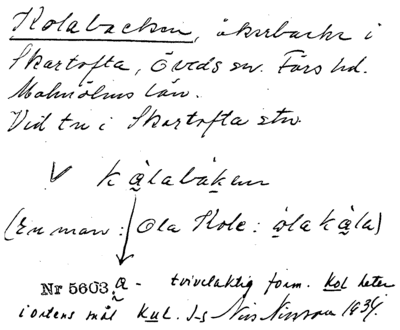 Kolabacken, åkerbacke i
Skartofta, Öveds sn. Färs hd.
Malmöhus län.
Vid tn i Skartofta stn.
V kålabåken
(En man: Ola Kole: ola kåla)
Nr 5603 a - tvivelaktig form. Kol heter
i ortens mål kul. Nils Nilsson 1934.